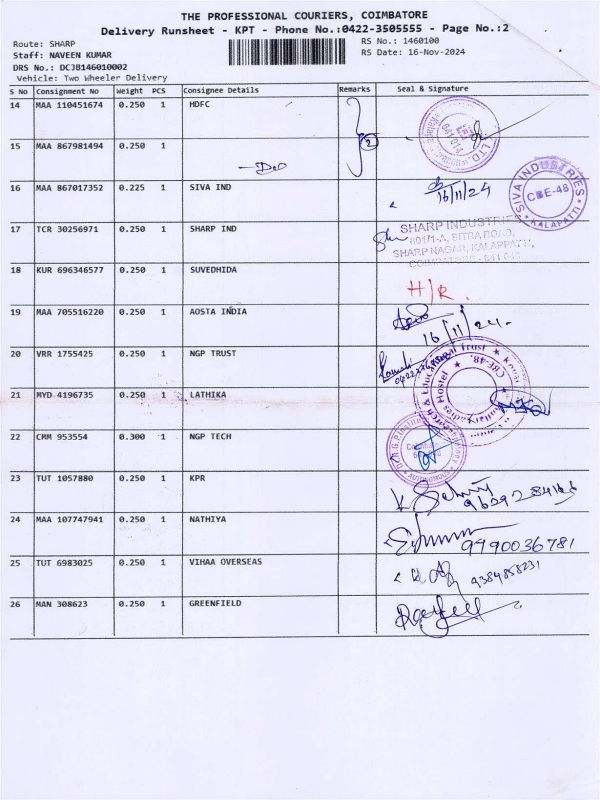 THE PROFESSIONAL COURIERS, COIMBATORE
Delivery Runsheet - KPT - Phone No.:0422-3505555 - Page No.:2
Route: SHARP RS No.: 1460100
Staff: NAVEEN KUMAR RS Date: 16-Nov-2024
DRS No.: DCJB146010002
Vehicle: Two Wheeler Delivery
S No Consignment No Weight PCS Consignee Details Remarks Seal & Signature
14 MAA 110451674 0.250 1 HDFC
2
15 MAA 867981494 0.250 1
16 MAA 867017352 0.225 1 SIVA IND 16/11/24
SIVA INDUSTRIES KALAPATTI
17 TCR 30256971 0.250 1 SHARP IND
SHARP INDUSTRIES
SHARP NAGAR, KALAPPATTI,
18 KUR 696346577 0.250 1 SUVEDHIDA H/R.
19 MAA 705516220 0.250 1 AOSTA INDIA
16/11/24.
20 VRR 1755425 0.250 1 NGP TRUST
21 MYD 4196735 0.250 1 LATHIKA
22 CMM 953554 0.300 1 NGP TECH
AUTONOMOUS
23 TUT 1057880 0.250 1 KPR
24 MAA 107747941 0.250 1 NATHIYA
9790036781
25 TUT 6983025 0.250 1 VIHAA OVERSEAS
9384858231
26 MAN 308623 0.250 1 GREENFIELD